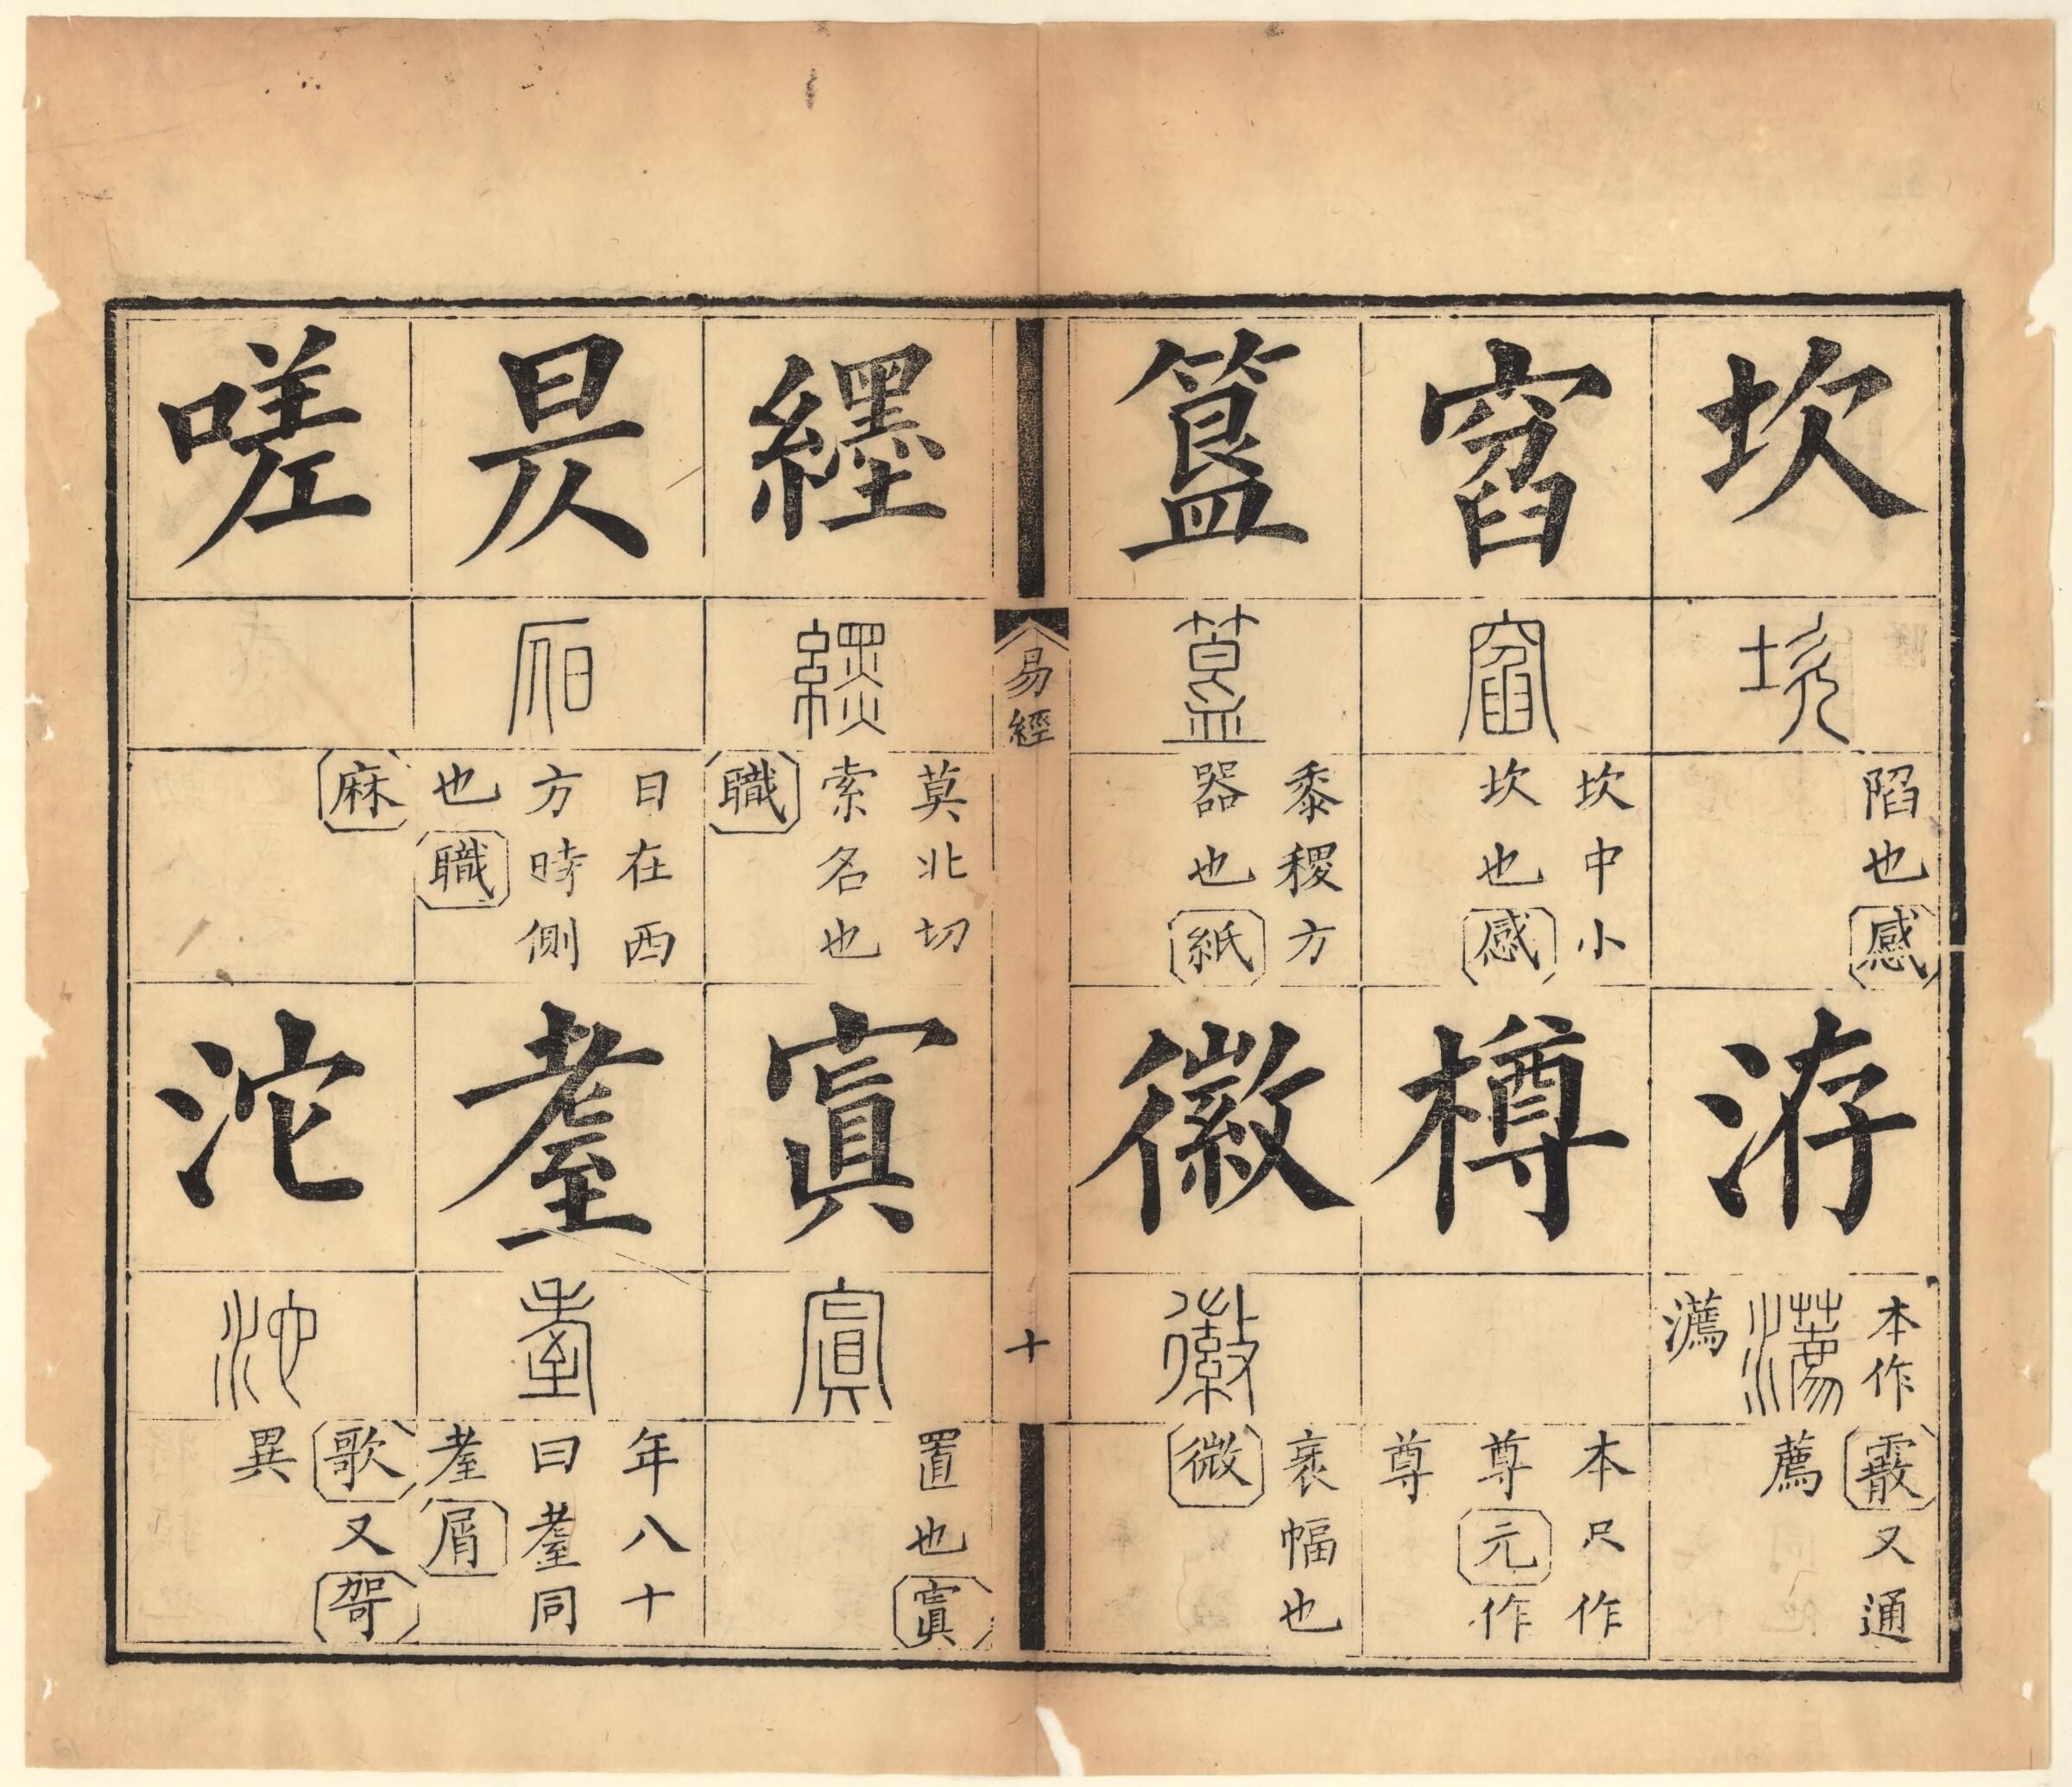 坎
坎
陷也感
洊
本作
瀳
瀳
霰又通
薦
窞
窞
坎中小
坎也感
樽
本只作
尊元作
尊
簋
簋
黍稷方
器也紙
徽
徽
衺幅也
微
易經
十
纆
纆
莫北切
索名也
職
寘
寘
置也寘
昃
昃
日在西
方時側
也職
耋
耋
年八十
曰耋同
耊屑
嗟
麻
沱
沱
歌又哿
異